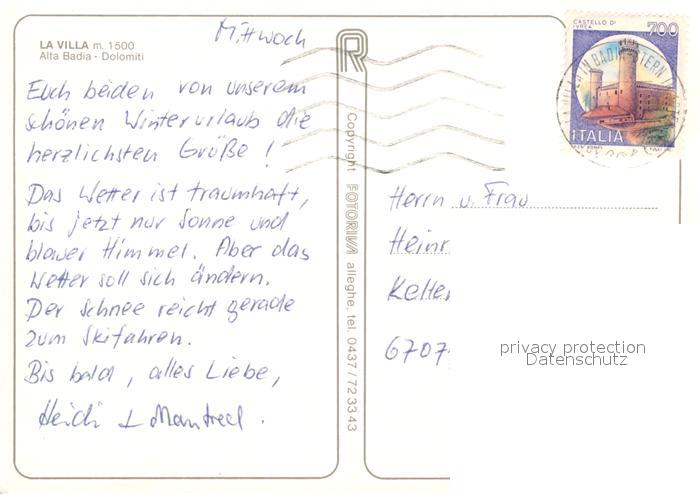 LA VILLA m. 1500
Alta Badia - Dolomiti
Mittwoch
Euch beiden von unserem
schönen Winterurlaub die
herzlichsten Grüße!
Das Wetter ist traumhaft,
bis jetzt nur Sonne und
blauer Himmel. Aber das
Wetter soll sich ändern.
Der Schnee reicht gerade
zum Skifahren.
Bis bald, alles Liebe,
Heidi + Manfred.
R
Copyright FOTORIVA alleghe, tel. 0437/723343
CASTELLO DI
IVREA
700
ITALIA
Herrn u. Frau
Heinr
Keller
6707
privacy protection
Datenschutz